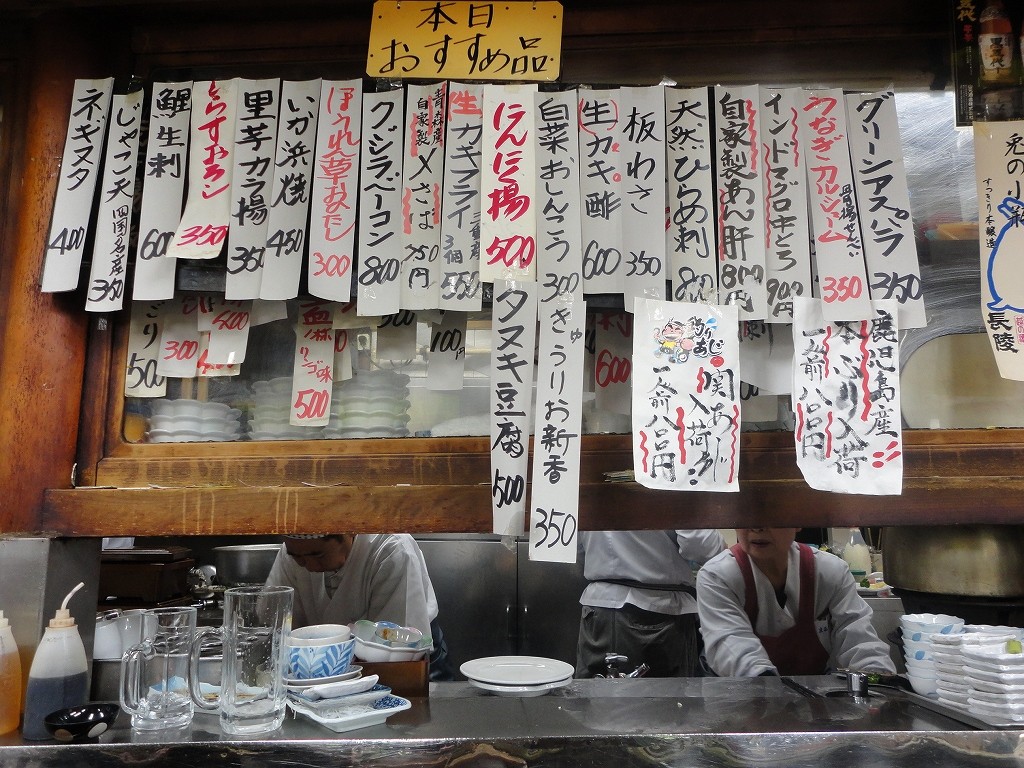 本日
おすすめ品
ネギヌタ 400
じゃこ天 四国名産 350
鯉生刺 600
とらすおろし 350
里芋カラ揚 350
いか浜焼 450
ほうれん草おひたし 300
クジラベーコン 800
青森産
自家製
〆さば 750円
生カキフライ 三重産
3個 550
にんにく揚 500
白菜おしんこう 300
生カキ酢 600
板わさ 350
天然ひらめ刺 800
自家製あん肝 800円
インドマグロ中とろ 900円
うなぎカルシューム
骨揚せんべい
350
グリーンアスパラ 350
500
300
400
リンゴ味 500
300
100
600
タヌキ豆腐 500
きゅうりお新香 350
釣りあじ
関あじ
入荷!
一人前八〇〇円
鹿児島産
本入荷
一人前八〇〇円
すっきり本醸造
長陵